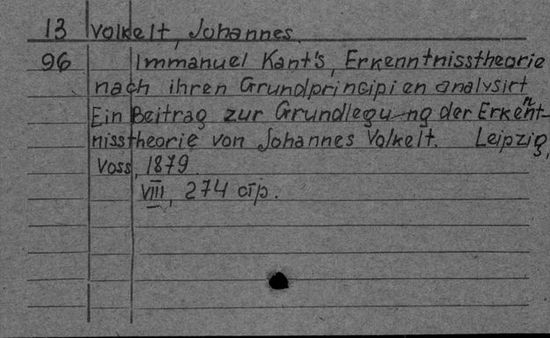 13 Volkelt, Johannes.
96 Immanuel Kant's, Erkenntnisstheorie
nach ihren Grundprincipien analysirt
Ein Beitrag zur Grundlegung der Erkennt-
nisstheorie von Johannes Volkelt. Leipzig,
Voss, 1879
VIII, 274 стр.